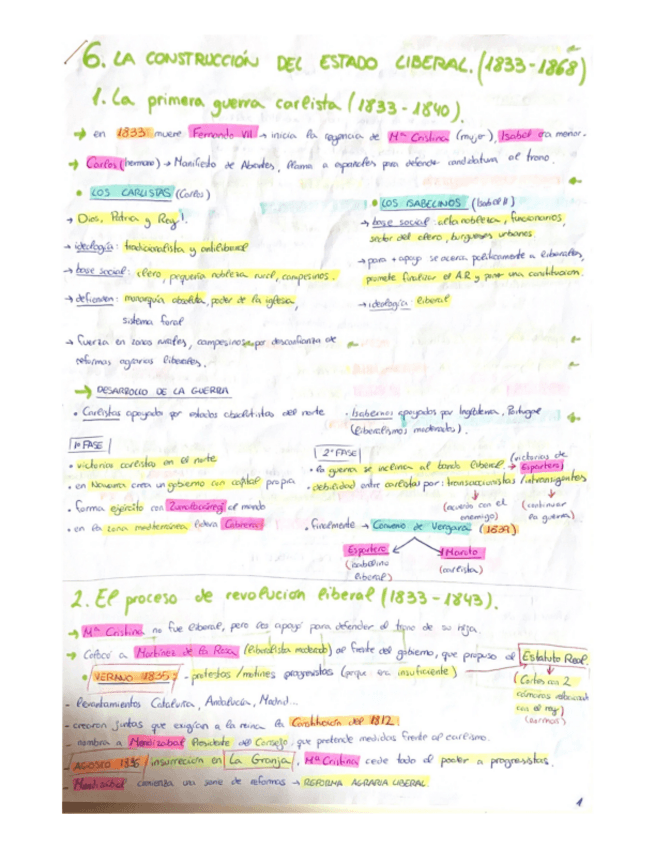 6. LA CONSTRUCCIÓN DEL ESTADO LIBERAL. (1833-1868)
1. La primera guerra carlista (1833-1840).
→ en 1833 muere Fernando VII → inicia la regencia de Mª Cristina (mujer), Isabel era menor.
→ Carlos (hermano) → Manifiesto de Abrantes, llama a españoles para defender candidatura al trono.
• LOS CARLISTAS (Carlos)
→ Dios, Patria y Rey!
→ ideología: tradicionalista y antiliberal
→ base social: clero, pequeña nobleza rural, campesinos.
→ defienden: monarquía absoluta, poder de la iglesia,
sistema foral
→ fuerza en zonas rurales, campesinos por desconfianza de
reformas agrarias liberales.
• LOS ISABELINOS (Isabel II)
→ base social: alta nobleza, funcionarios,
sector del clero, burgueses urbanos.
→ para + apoyo se acerca políticamente a liberales,
promete finalizar el A.R y poner una constitución.
→ ideología: liberal
→ DESARROLLO DE LA GUERRA
• Carlistas apoyados por estados absolutistas del norte
• Isabelinos apoyados por Inglaterra, Portugal
(liberalismos moderados).
1ª FASE
• victorias carlistas en el norte
• en Navarra crea un gobierno con capital propia
• forma ejército con Zumalacárregui al mando
• en la zona mediterránea lidera Cabrera
2ª FASE
• la guerra se inclina al bando liberal → (victorias de Espartero)
• debilidad entre carlistas por: transaccionistas / intransigentes
(acuerdo con el enemigo) (continuar la guerra)
• finalmente → Convenio de Vergara (1839)
Espartero Maroto
(isabelino liberal) (carlista)
2. El proceso de revolución liberal (1833-1843).
→ Mª Cristina no fue liberal, pero les apoyó para defender el trono de su hija.
→ Colocó a Martínez de la Rosa (liberalista moderado) al frente del gobierno, que propuso el Estatuto Real.
(Cortes con 2
cámaras
con el rey)
• VERANO 1835: - protestas / motines progresistas (porque era insuficiente)
- levantamientos Cataluña, Andalucía, Madrid...
- crearon juntas que exigían a la reina la Constitución del 1812.
- nombra a Mendizábal Presidente del Consejo, que pretende medidas frente al carlismo.
- AGOSTO 1836 / insurrección en La Granja, Mª Cristina cede todo el poder a progresistas.
- Mendizábal comienza una serie de reformas → REFORMA AGRARIA LIBERAL.
1